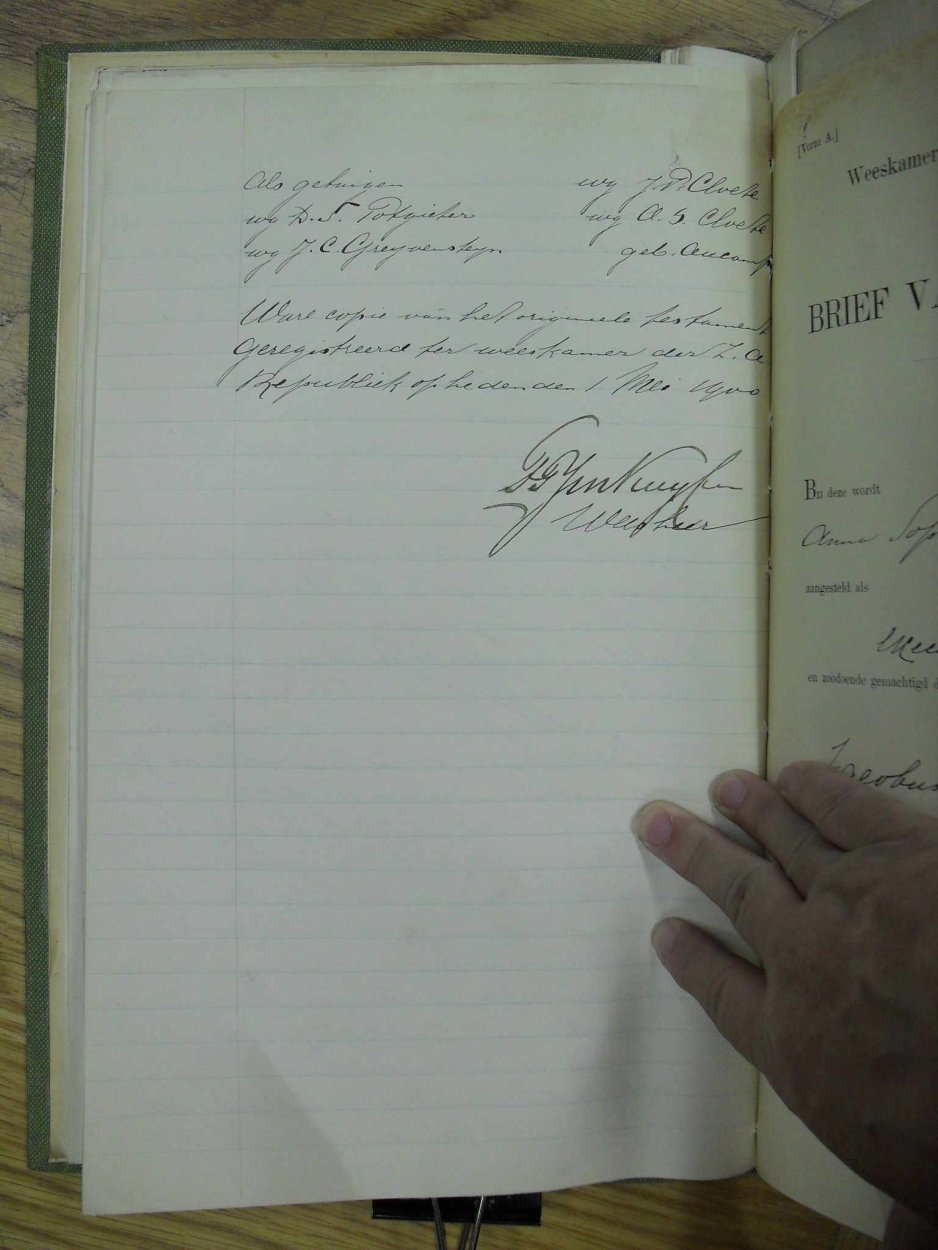 Als getuigen wg J. P. Cloete
wg D. S. Potgieter wg A. S Cloete
wg J. C. Greyvensteyn geb. Aucamp
Ware copie van het origineele testament
Geregistreerd ter weeskamer der Z. A
Republiek op heden den 1 Mei 1900
Weesheer
[Vorm A.]
Weeskamer
BRIEF VA
BIJ deze wordt
Anna Sop
aangesteld als
en zoodoende gemachtigd d
Jacobus